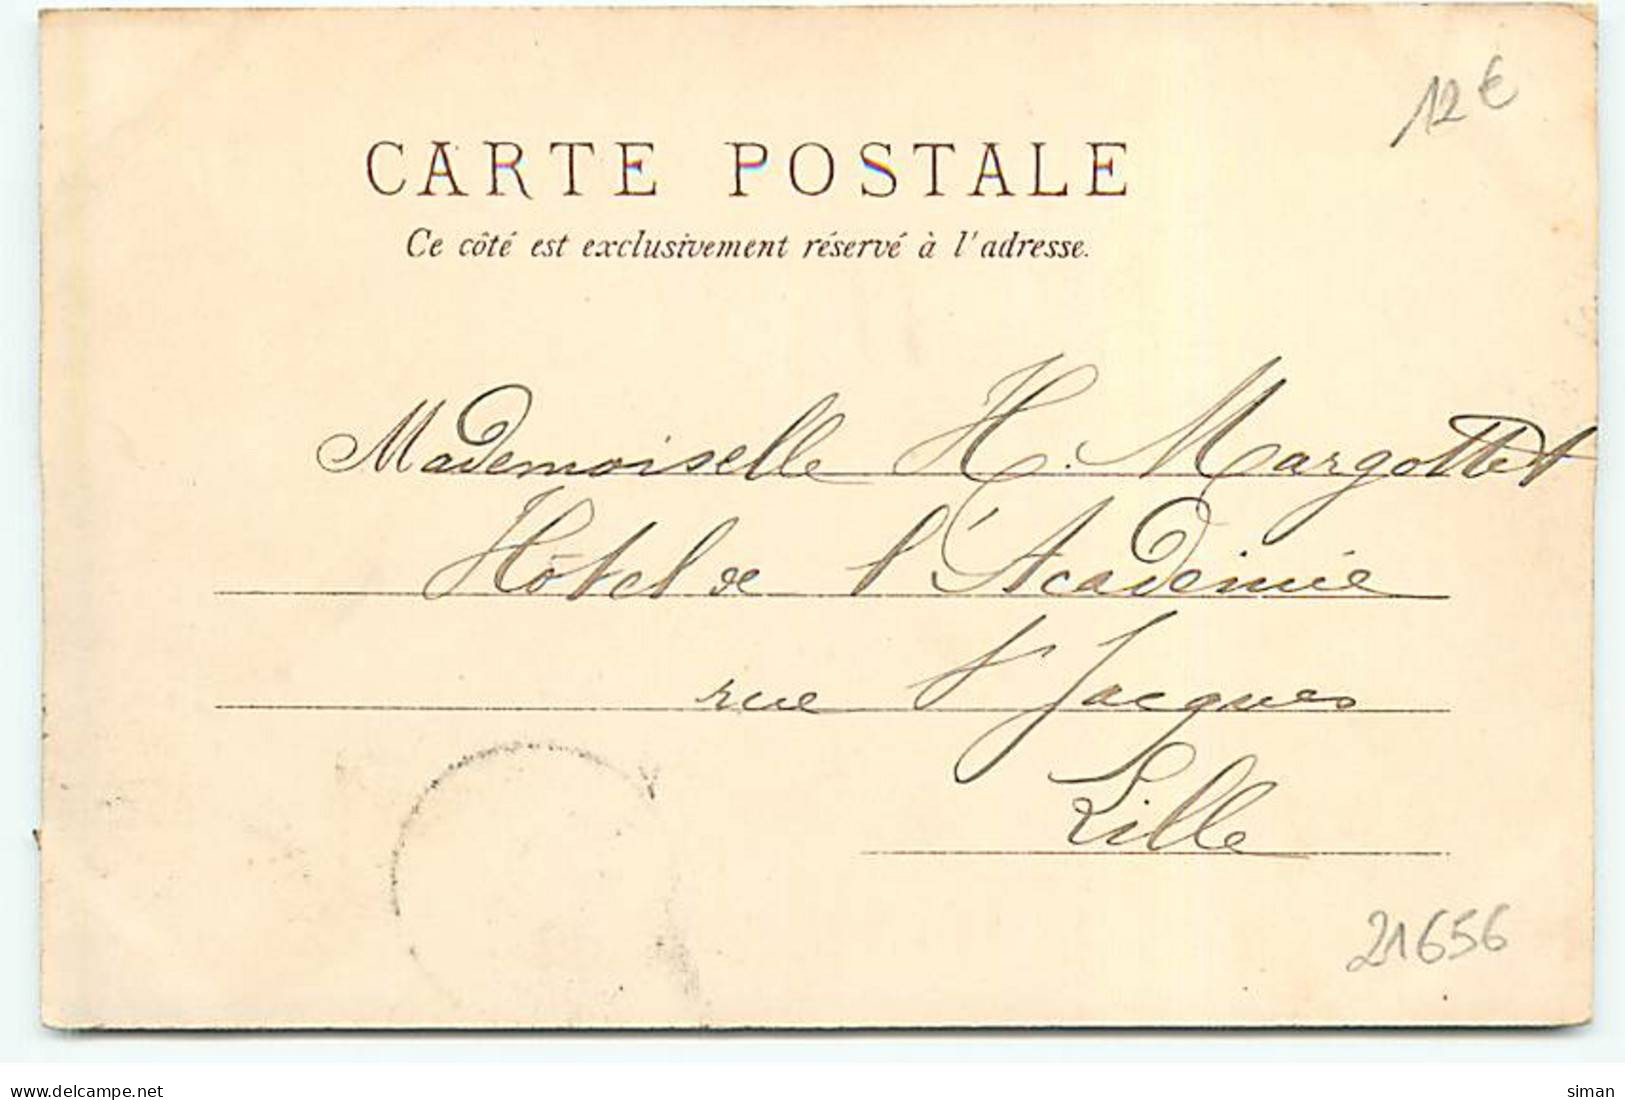 12€
CARTE POSTALE
Ce côté est exclusivement réservé à l'adresse.
Mademoiselle H. Margottet
Hôtel de l'Académie
rue St Jacques
Lille
21656
www.delcampe.net
siman